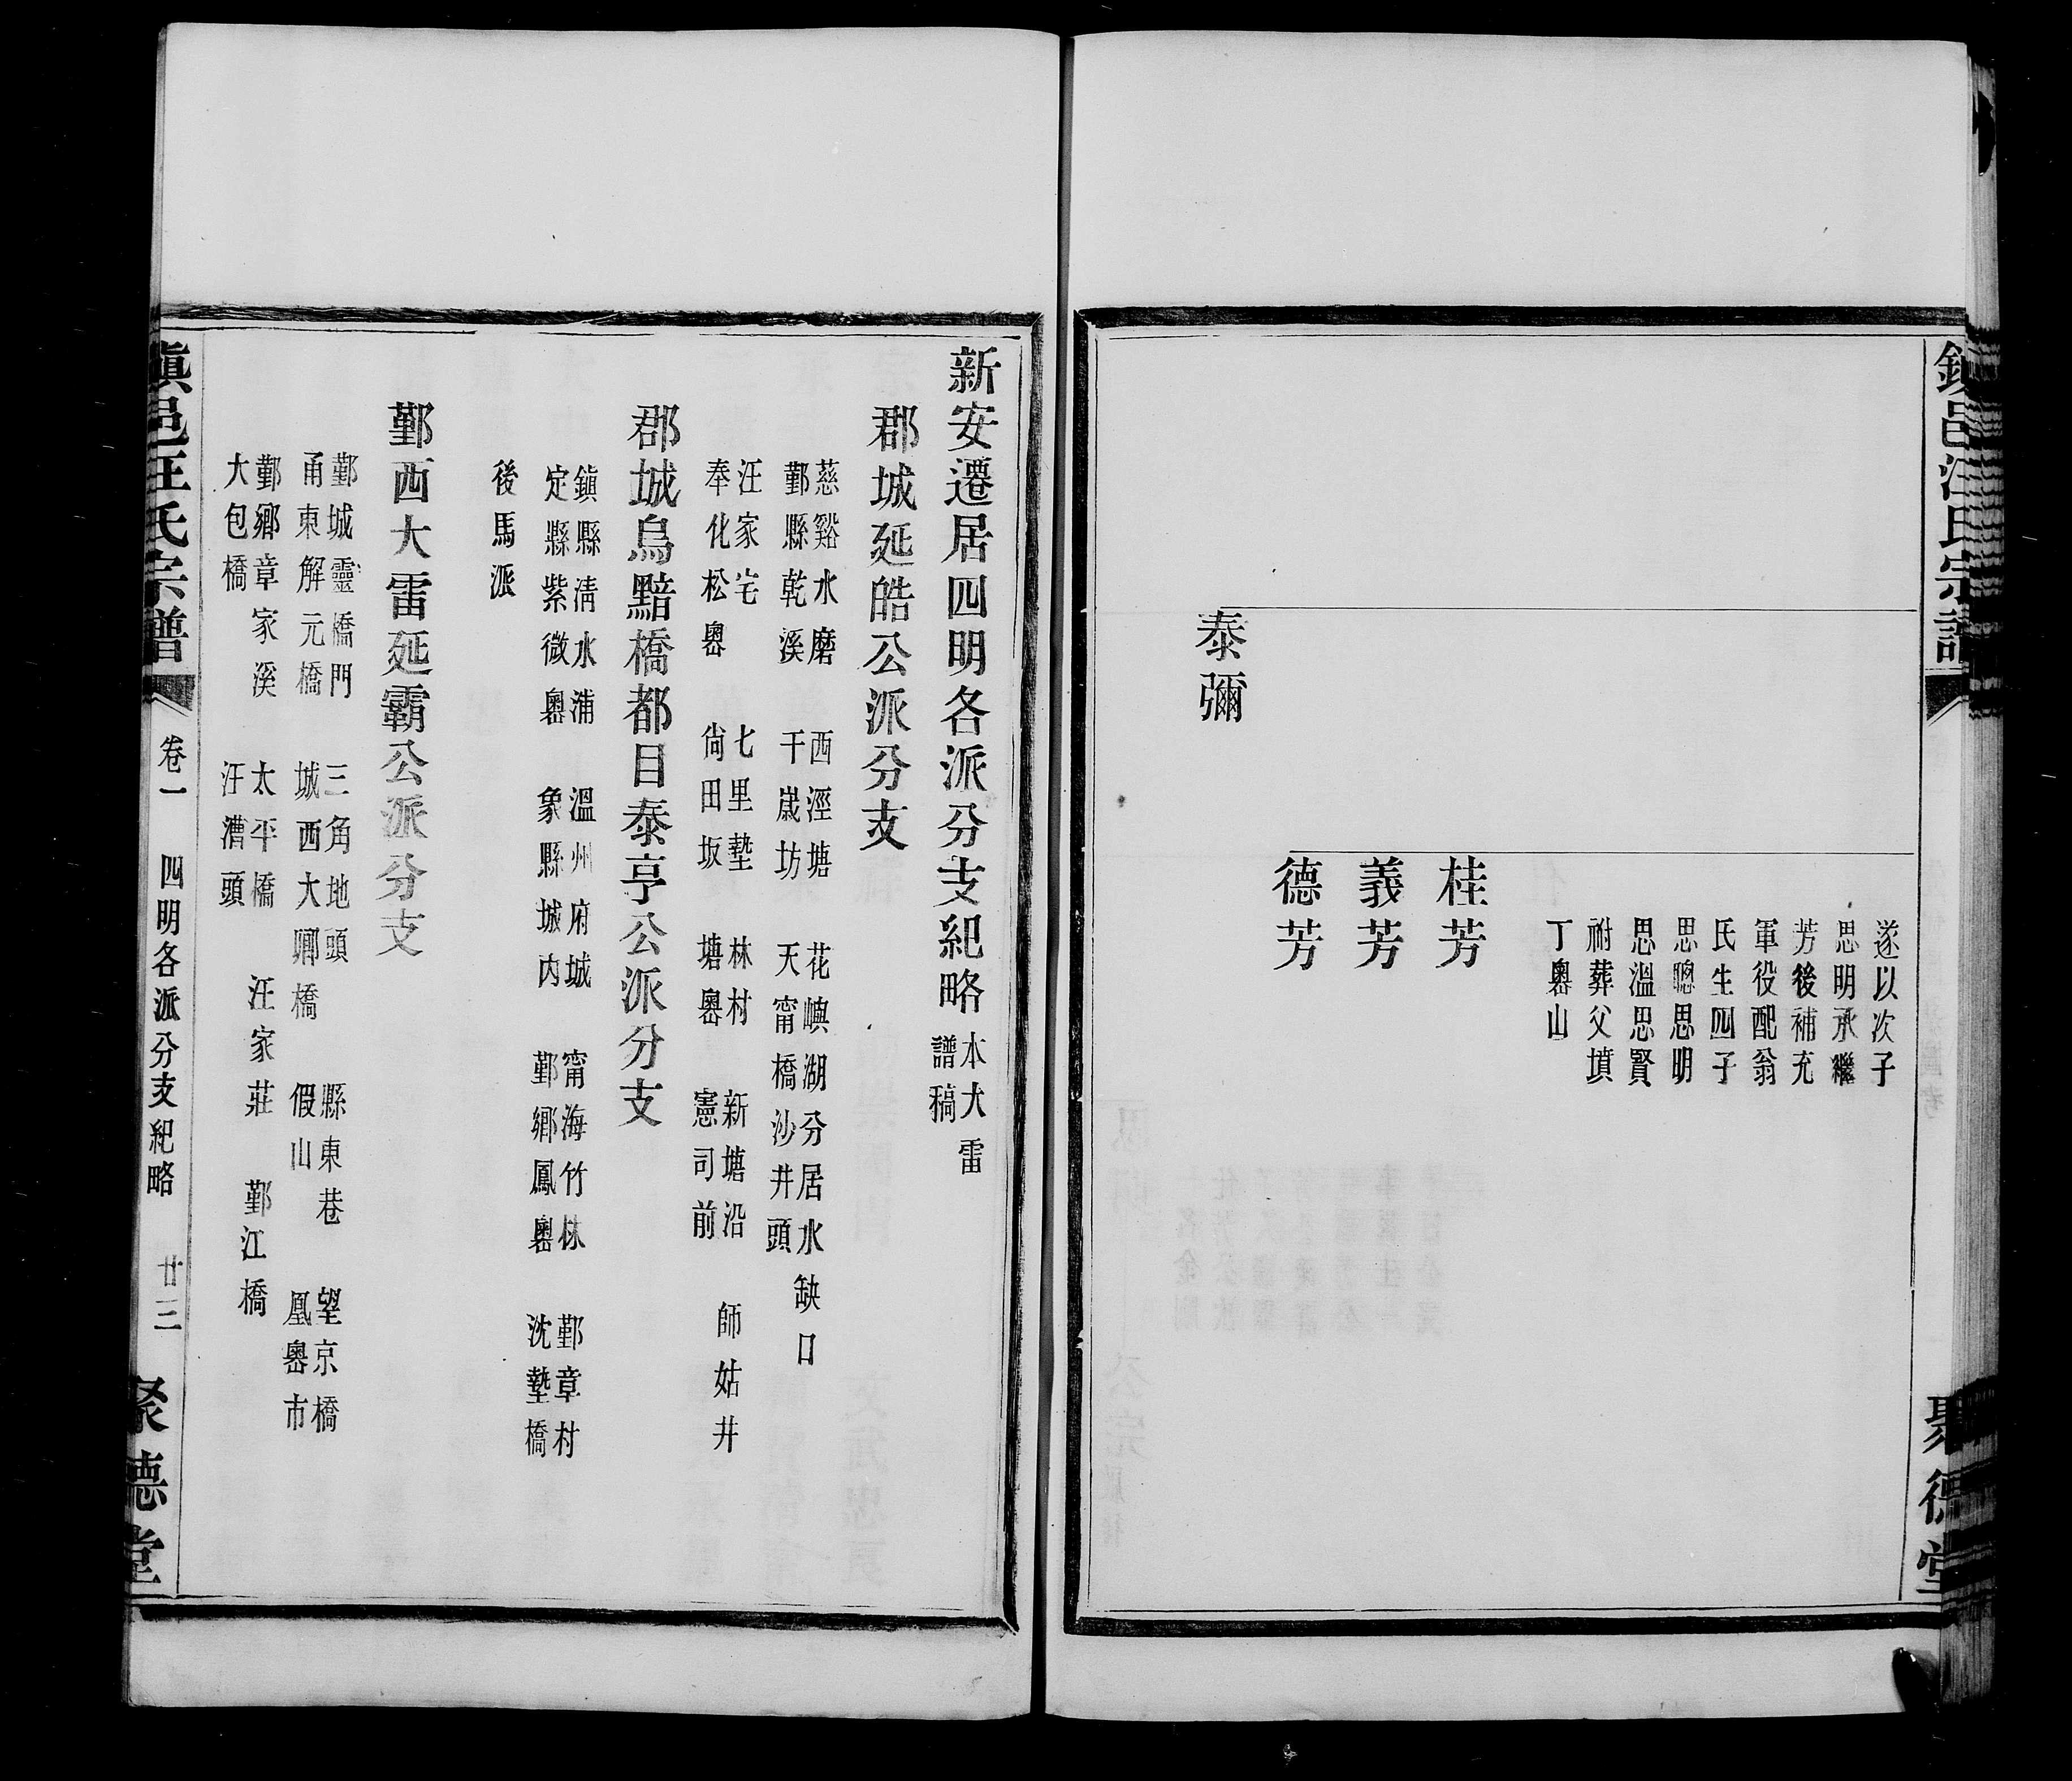 鎮邑汪氏宗譜
聚德堂
遂以次子
思明承繼
芳後補充
軍役配翁
氏生四子
思聰思明
思溫思賢
祔葬父墳
丁嶴山
桂芳
義芳
德芳
泰彌
新安遷居四明各派分支紀略
本大雷
譜稿
郡城延皓公派分支
慈谿水磨 西涇塘 花嶼湖分居水缺口
鄞縣乾溪 千歲坊 天甯橋沙井頭
汪家宅 七里墊 林村 新塘沿 師姑井
奉化松嶴 尙田坂 塘嶴 憲司前
郡城烏黯橋都目泰亨公派分支
鎮縣淸水浦 溫州府城 甯海竹林 鄞章村
定縣紫微嶴 象縣城內 鄞鄉鳳嶴 沈墊橋
後馬派
鄞西大雷延霸公派分支
鄞城靈橋門 三角地頭 縣東巷 望京橋
甬東解元橋 城西大卿橋 假山 凰嶴市
鄞鄉章家溪 太平橋 汪家莊 鄞江橋
大包橋 汪漕頭
鎮邑汪氏宗譜 卷一 四明各派分支紀略 廿三 聚德堂